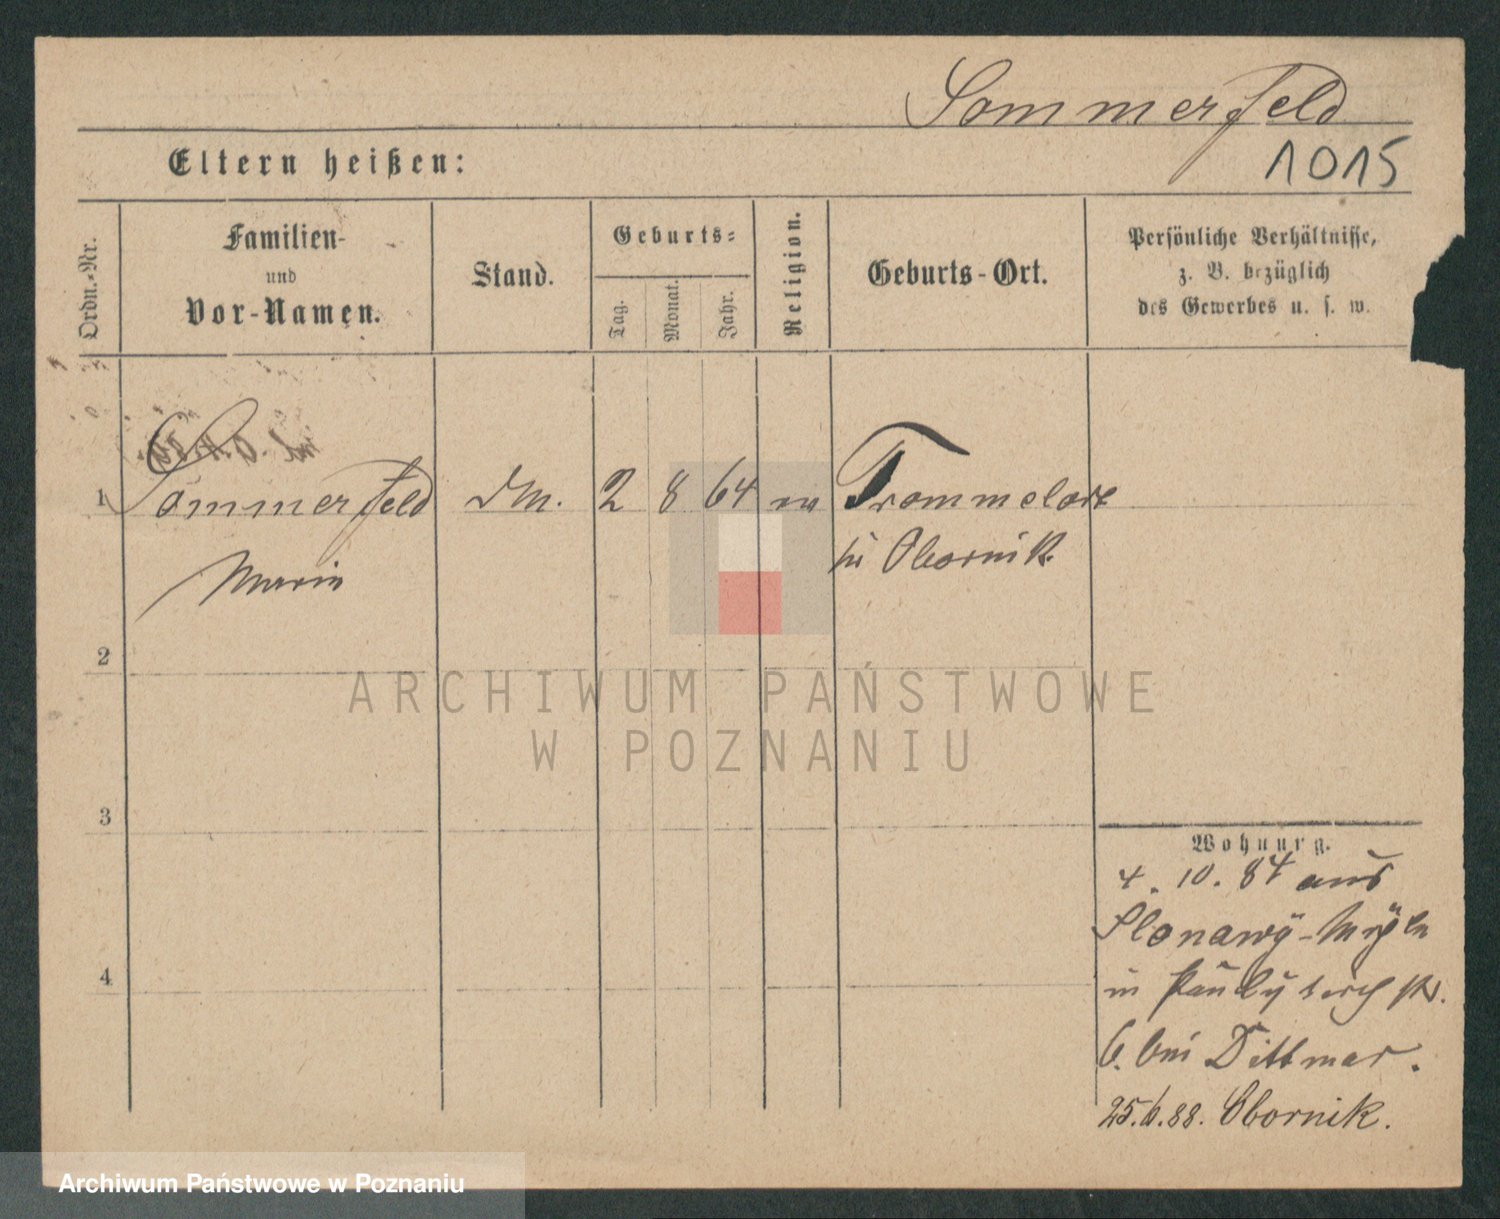 Sommerfeld
Eltern heißen:
1015
Ordn.-Nr.
Familien-
und
Vor-Namen.
Stand.
Geburts-
Tag.
Monat.
Jahr.
Religion.
Geburts-Ort.
Persönliche Verhältnisse,
z. B. bezüglich
des Gewerbes u. s. w.
1 Sommerfeld DM. 2 8 64 ev Trommelort
bei Obornik
Marie
2
ARCHIWUM PAŃSTWOWE
W POZNANIU
3
Wohnung.
4. 10. 84 aus
Slonawy-Mühle
in
4
6. bei Dittmar.
25.6.88. Obornik.
Archiwum Państwowe w Poznaniu